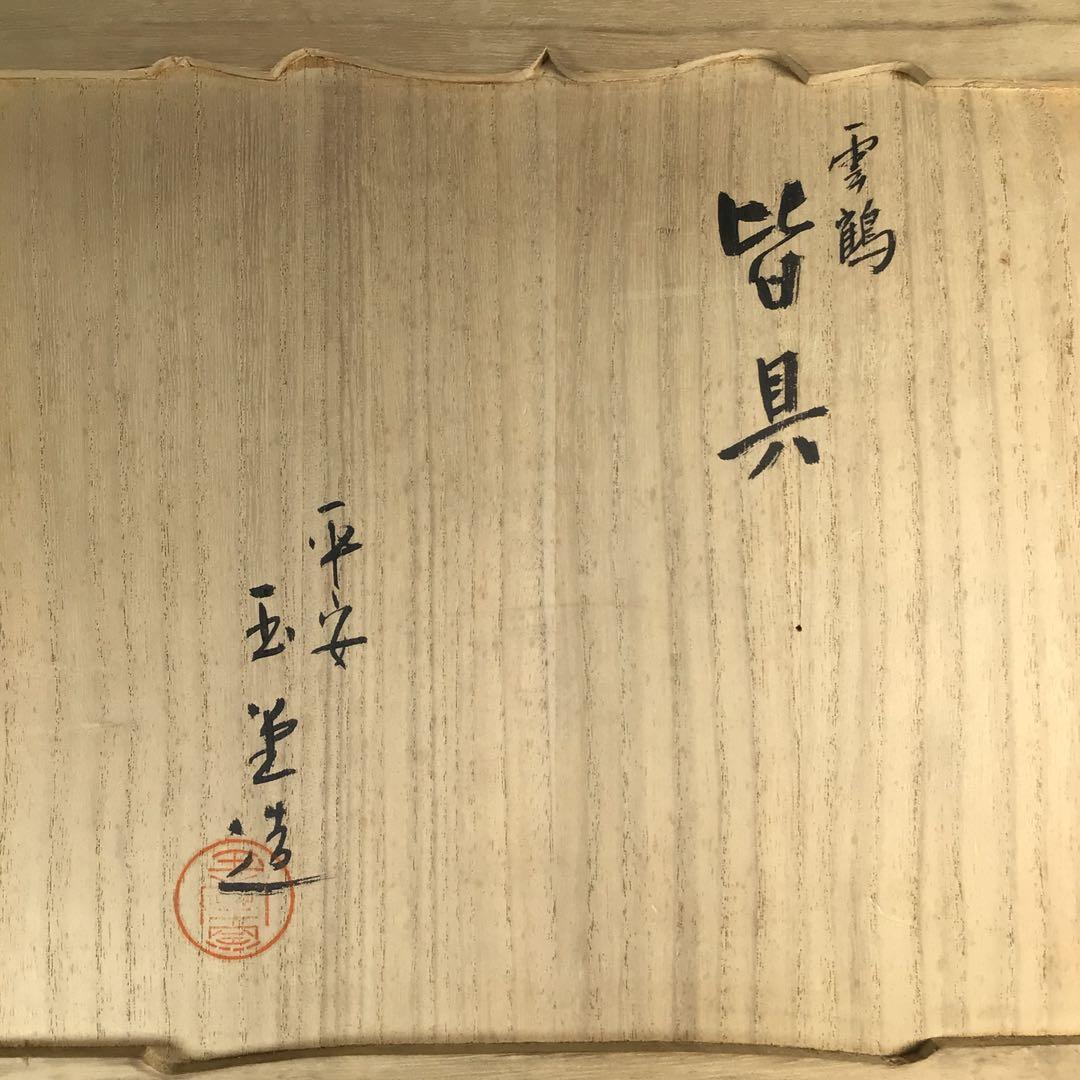 雲鶴
皆具
平安
玉堂造